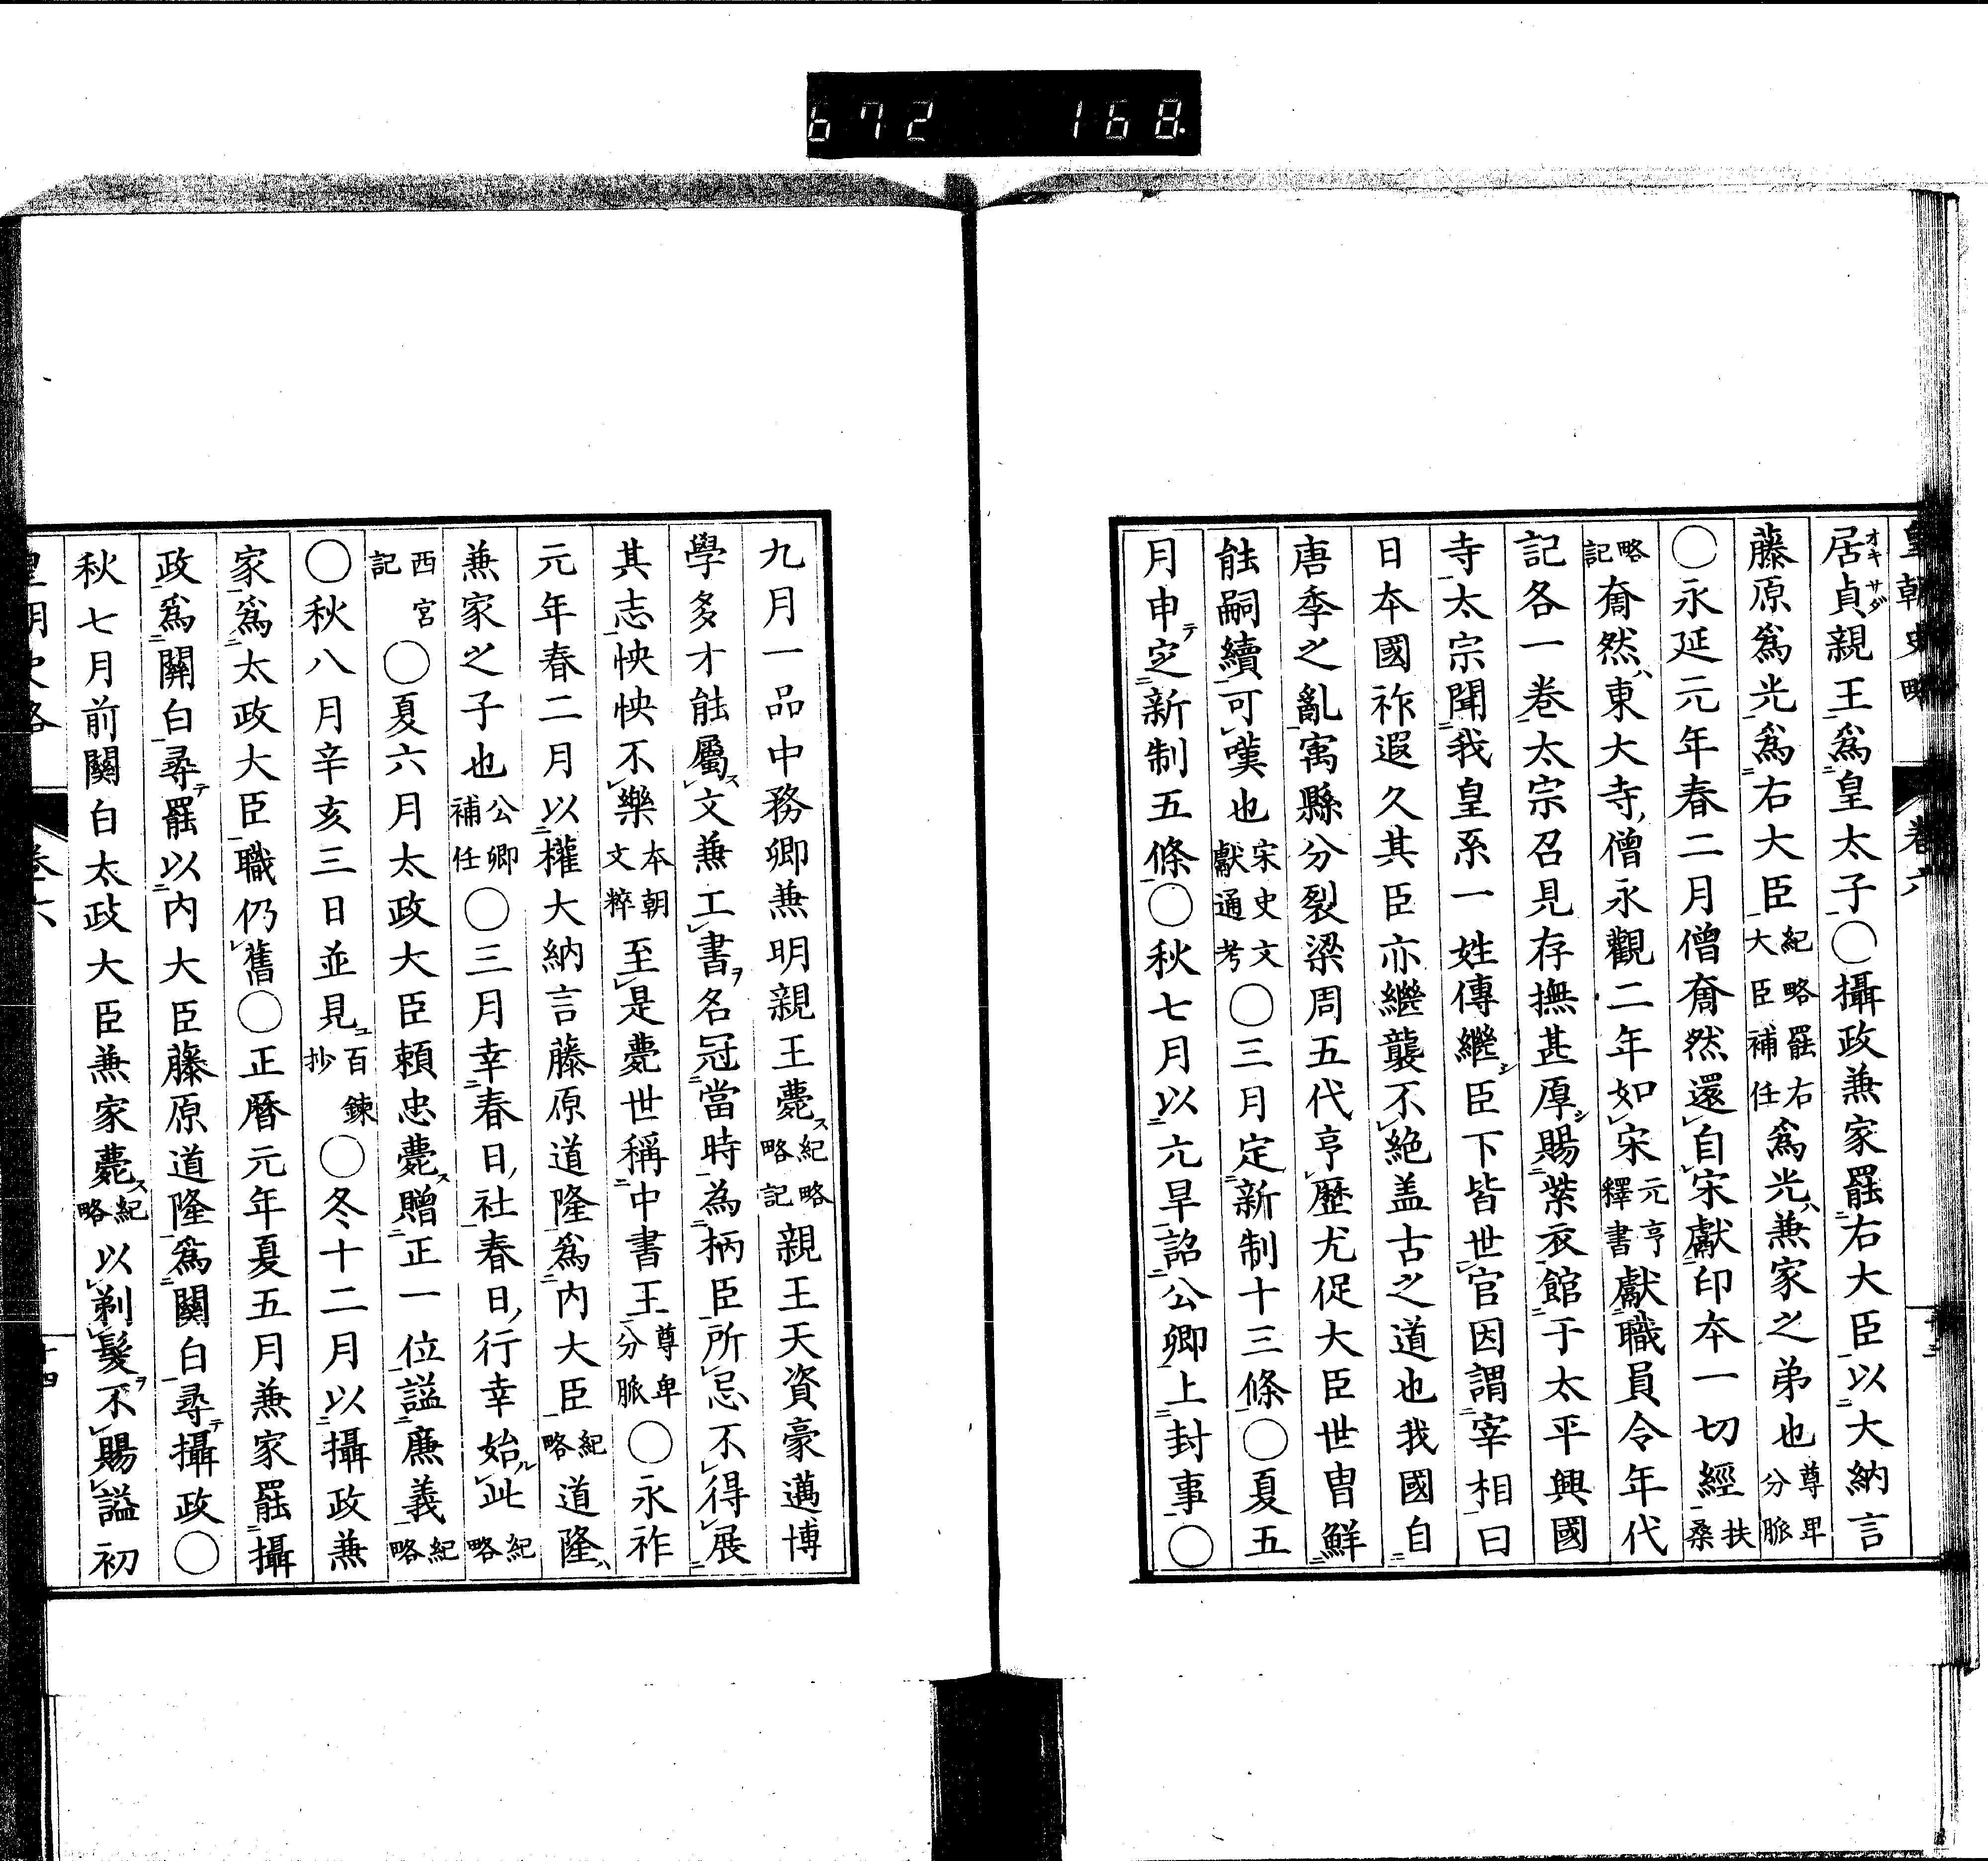 672 168
皇朝史略 卷六
居貞親王爲皇太子○攝政兼家罷右大臣以大納言
オキサダ
藤原爲光爲右大臣紀略大臣補任罷右爲光ハ兼家之弟也尊卑分脈
○永延元年春二月僧奝然還自宋獻印本一切經扶桑
略記奝然ハ東大寺僧永觀二年如宋元亨釋書獻職員令年代
記各一卷太宗召見存撫甚厚シ賜紫衣館于太平興國
寺太宗聞我皇系一姓傳繼シ臣下皆世官因謂宰相曰
日本國祚遐久其臣亦繼襲不絶盖古之道也我國自
唐季之亂寓縣分裂梁周五代享歷尤促大臣世冑鮮
能嗣續可嘆也宋史文獻通考○三月定新制十三條○夏五
月申テ定新制五條○秋七月以亢旱詔公卿上封事○
九月一品中務卿兼明親王薨ス紀略略記親王天資豪邁博
學多才能屬ス文兼工書ヲ名冠當時為柄臣所忌不得展
其志怏怏不樂本朝文粹至是薨世稱中書王尊卑分脈○永祚
元年春二月以權大納言藤原道隆爲内大臣紀略道隆ハ
兼家之子也公卿補任○三月幸春日社春日行幸始ル此紀略
西宮記○夏六月太政大臣頼忠薨ス贈正一位謚廉義紀略
○秋八月辛亥三日並見ユ百鍊抄○冬十二月以攝政兼
家爲太政大臣職仍舊○正曆元年夏五月兼家罷攝
政爲關白尋テ罷以内大臣藤原道隆爲關白尋テ攝政○
秋七月前關白太政大臣兼家薨ス紀略以剃髮ヲ不賜謚初
皇朝史略 卷六 十四